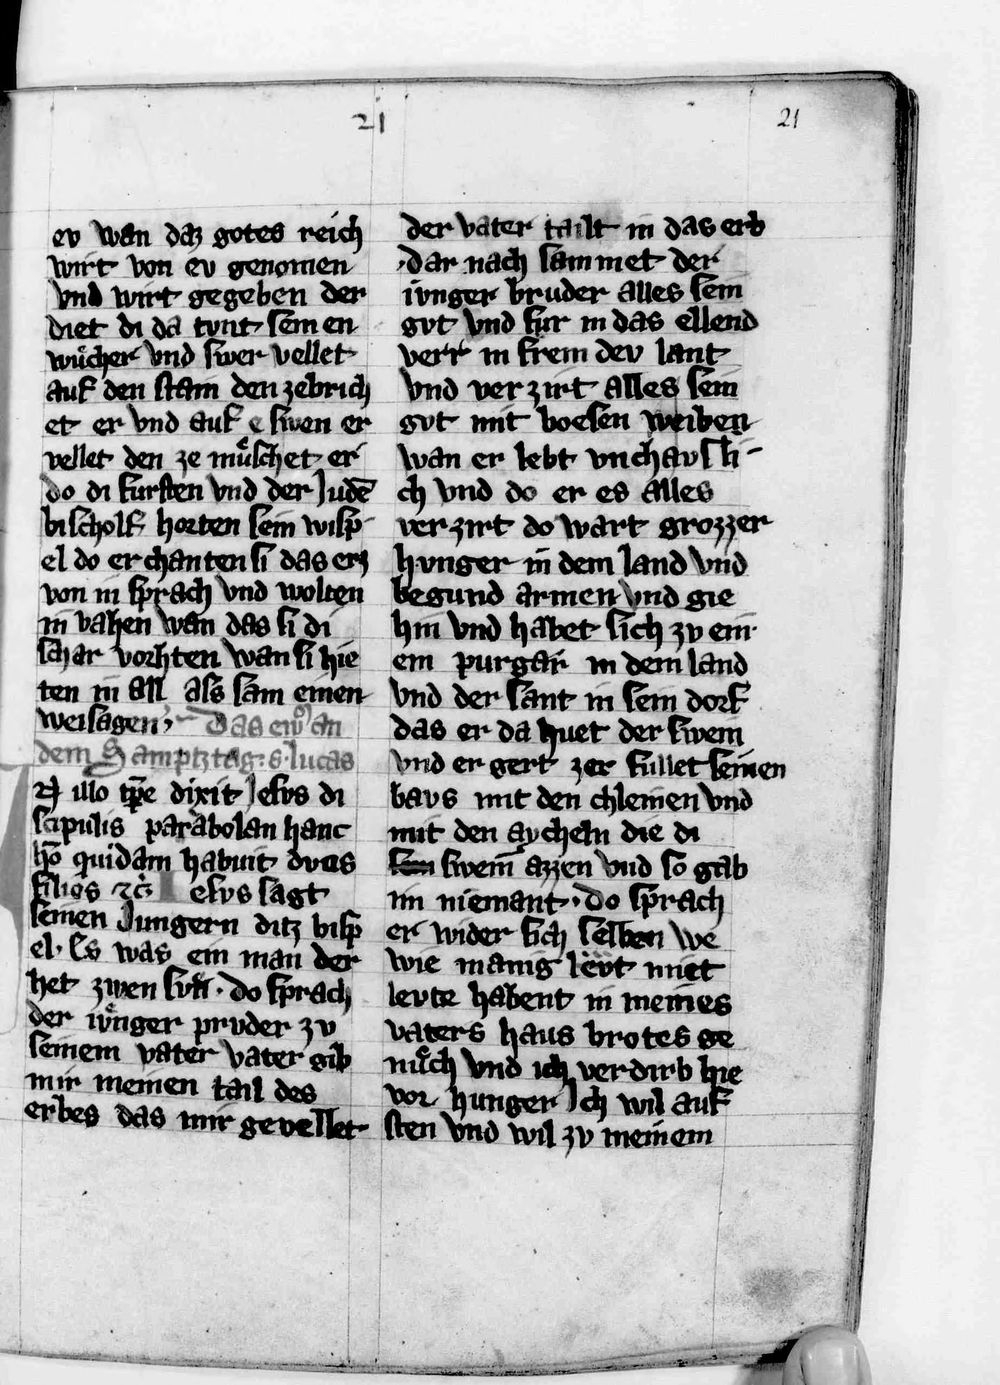 21
21
ev wan daz gotes reich
wirt von ev genomen
vnd wirt gegeben der
diet di da tvnt sein en
wuͦcher vnd swer vellet
auf den stain den zebrich
et er vnd auf e swen er
vellet den ze muͤschet er
do di fursten vnd der Judē
bischolf horten sein wisp
el do er chanten si das erz
von in sprach vnd wolten
in vahen wan das si di
schar vorhten wan si hie
ten in all als sam einen
weisagen Das ew͛ an
dem Samptztag s. lucas
N illo tp̄e dixit Jesvs di
scipulis parabolan hanc
hō quidam habuit dvas
filios ⁊c̄ Jesvs sagt
seinen Jungern ditz bisp
el. Es was ein man der
het zwen svn. do sprach
der ivͤnger prvder zv
seinem vater vater gib
mir meinen tail des
erbes das mir gevellet
der vater tailt in das erb
dar nach sammet der
ivnger bruder alles sein
gvt vnd fur in das ellend
verr in frem dev lant
vnd ver zirt alles sein
gvt mit boesen weiben
wan er lebt vnchavsli
ch vnd do er es alles
ver zirt do wart grozzer
hvnger in dem land vnd
begund armen vnd gie
hin vnd habet sich zv ein
em purgar in dem land
vnd der sant in sein dorf
das er da huet der swein
vnd er gert zer fullet seinen
bavs mit den chleinen vnd
mit den aycheln die di
swein azzen vnd so gab
im niemant. Do sprach
er wider sich selben we
wie manig levt miet
levte habent in meines
vaters haus brotes ge
nuͦch vnd ich verdirb hie
vor hunger Ich wil auf
sten vnd wil zv meinem